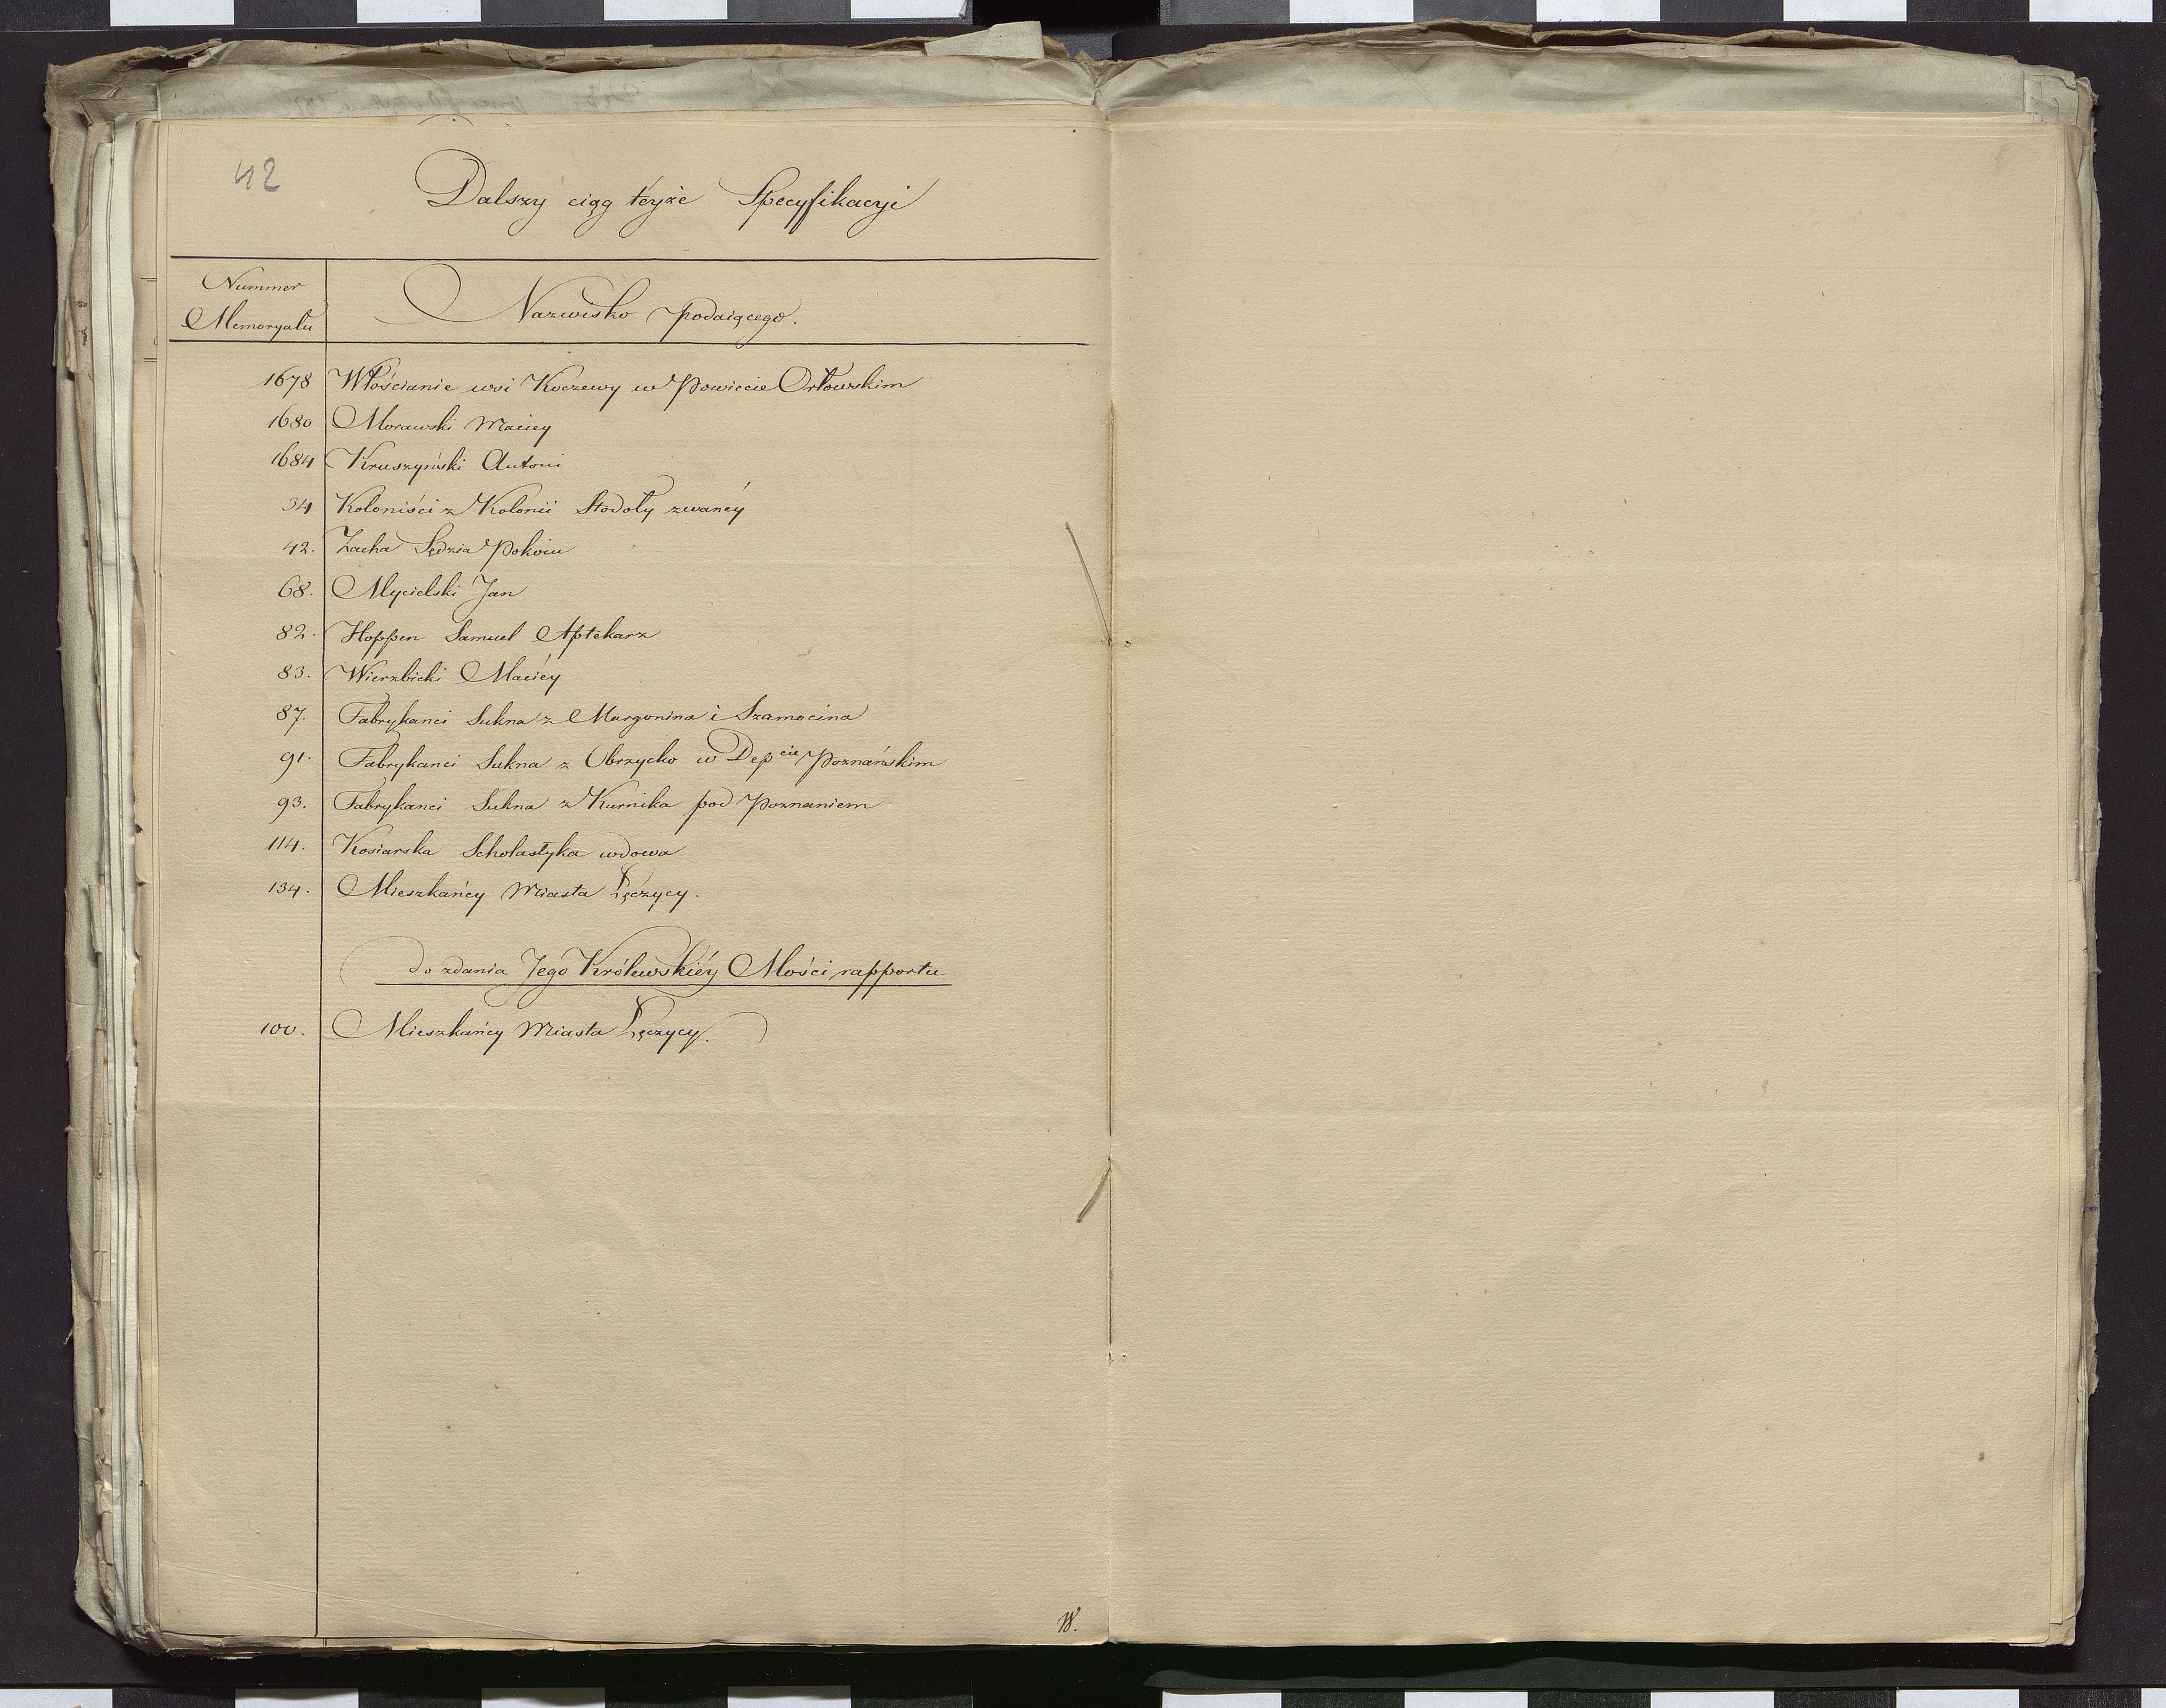 42
Dalszy ciąg teyże Specyfikacyi
Nummer
Memoryału
Nazwisko podaiącego.
1678 Włościanie wsi Koczewy w Powiecie Orłowskim
1680 Morawski Maciey
1684 Kruszyński Antoni
34 Koloniści z Kolonii Stodoły zwanéy
42. Zacha Sędzia Pokoiu
68. Mycielski Jan
82. Hoppen Samuel Aptekarz
83. Wierzbicki Maciéy
87. Fabrykanci Sukna z Margonina i Szamocina
91. Fabrykanci Sukna z Obrzycko w Depcie Poznańskim
93. Fabrykanci Sukna z Kurnika pod Poznaniem
114. Kosiarska Scholastyka wdowa
134. Mieszkańcy Miasta Łęczycy.
do zdania Jego Królewskiéy Mości rapportu
100. Mieszkańcy Miasta Łęczycy.